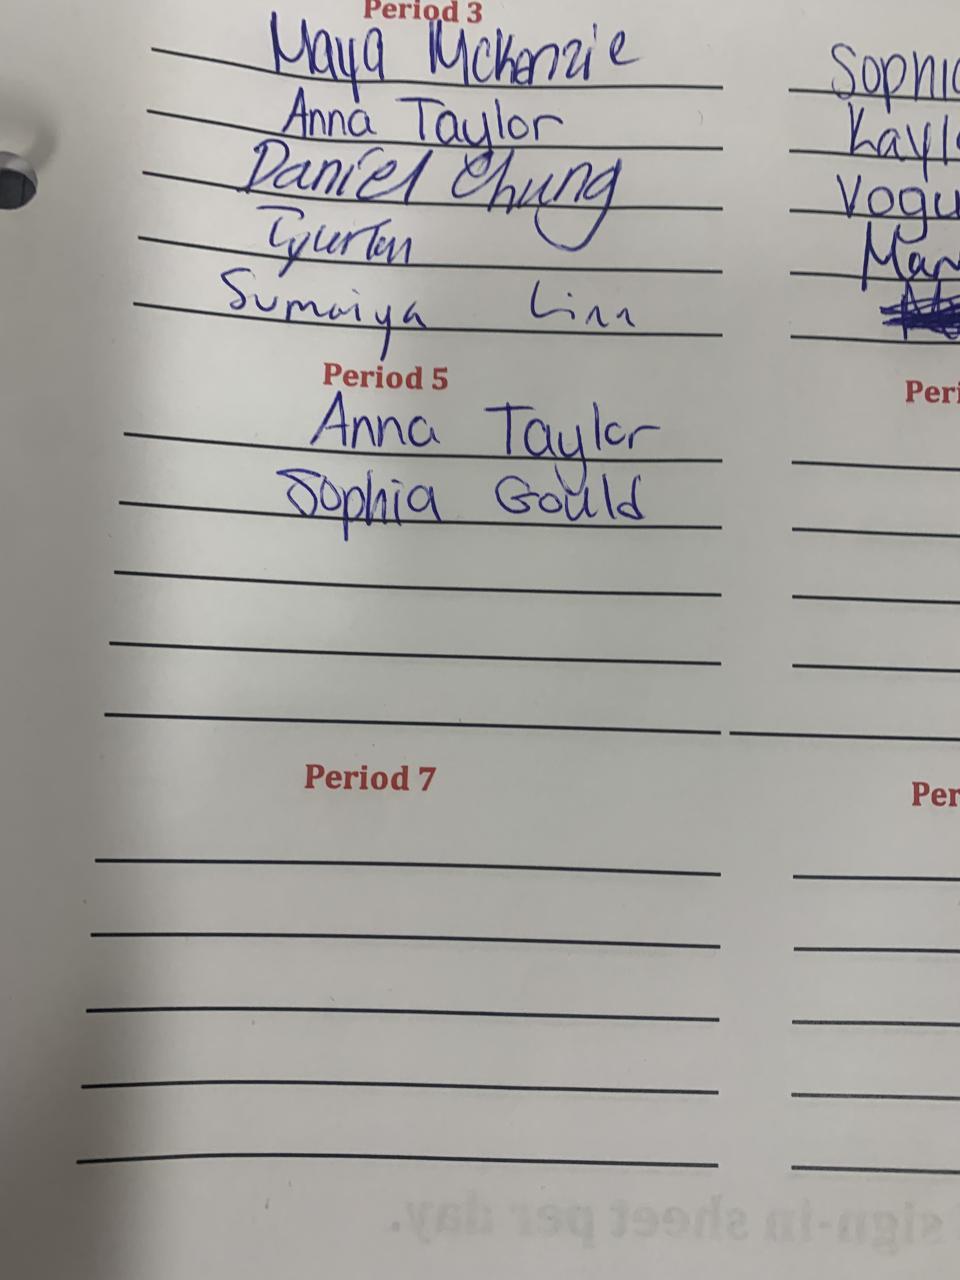 Period 3
Maya Mckenzie
Anna Taylor
Daniel Chung
Sumaiya Linn
Period 5
Anna Taylor
Sophia Gould
Period 7
Sophi
Kayl
Vogu
Mar
Peri
Per
sign-in sheet per day.